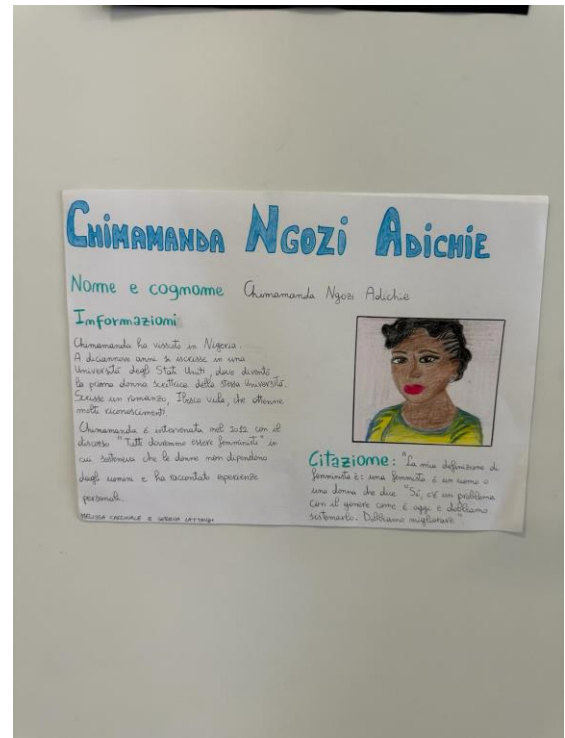 CHIMAMANDA NGOZI ADICHIE
Nome e cognome Chimamanda Ngozi Adichie
Informazioni
Chimamanda ha vissuto in Nigeria.
A diciannove anni si iscrisse in una
Università degli Stati Uniti, dove diventò
la prima donna scrittrice della stessa Università.
Scrisse un romanzo, Ibisco viola, che ottenne
molti riconoscimenti.
Chimamanda è intervenuta nel 2012 con il
discorso "Tutti dovremmo essere femministi" in
cui sosteneva che le donne non dipendono
dagli uomini e ha raccontato esperienze
personali.
Citazione: "La mia definizione di
femminista è: una femminista è un uomo o
una donna che dice "Sì, c'è un problema
con il genere come è oggi e dobbiamo
sistemarlo. Dobbiamo migliorare"